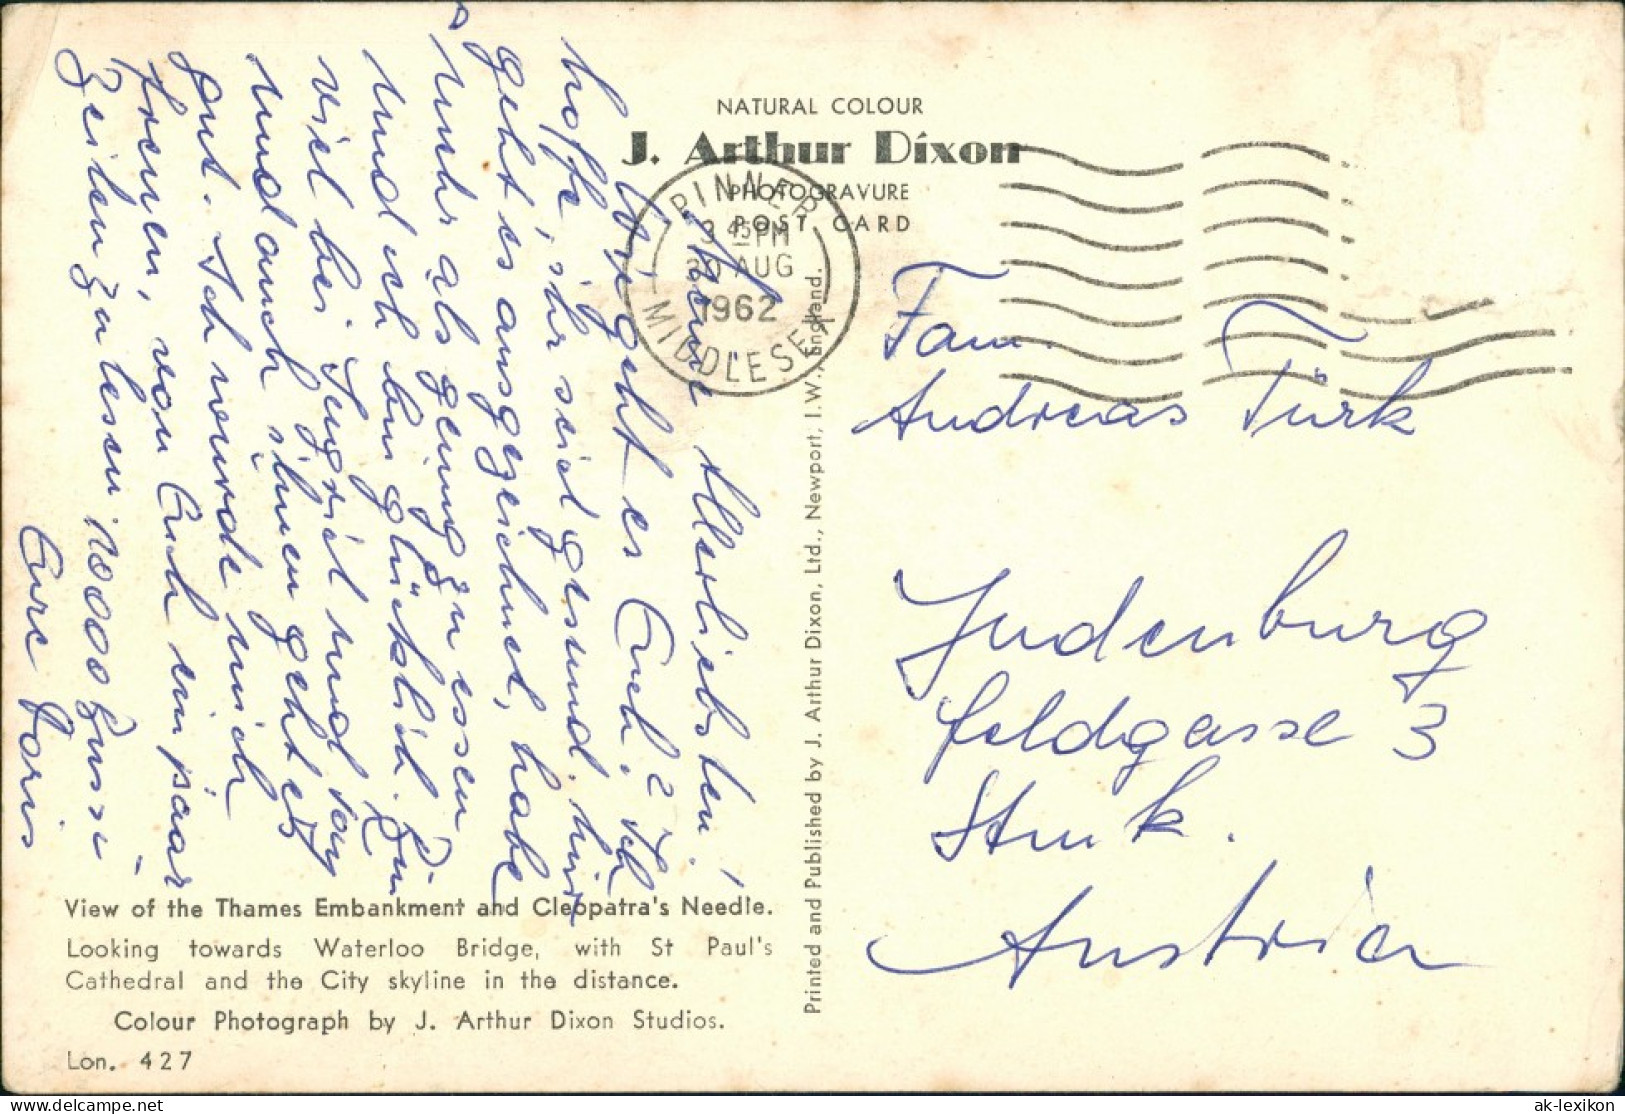 NATURAL COLOUR
J. Arthur Dixon
PHOTOGRAVURE
POST CARD
PINNER
3 45 PM
AUG
1962
MIDDLESEX
Meine Allerliebsten!
Wie geht es Euch? Ich
hoffe, ihr seid gesund. Mir
geht es ausgezeichnet, habe
mehr als genug zu essen
und ich bin glücklich. Bin
viel bei Ingrid und
und auch ihnen geht es
gut. Ich würde mich
freuen, von Euch ein paar
Zeilen zu lesen. 1000 Bussi
Eure Doris
Fam.
Andreas Türk
Judenburg
Feldgasse 3
Stmk.
Austria
Printed and Published by J. Arthur Dixon, Ltd., Newport, I.W., England.
View of the Thames Embankment and Cleopatra's Needle.
Looking towards Waterloo Bridge, with St Paul's
Cathedral and the City skyline in the distance.
Colour Photograph by J. Arthur Dixon Studios.
Lon. 427
ak-lexikon.com